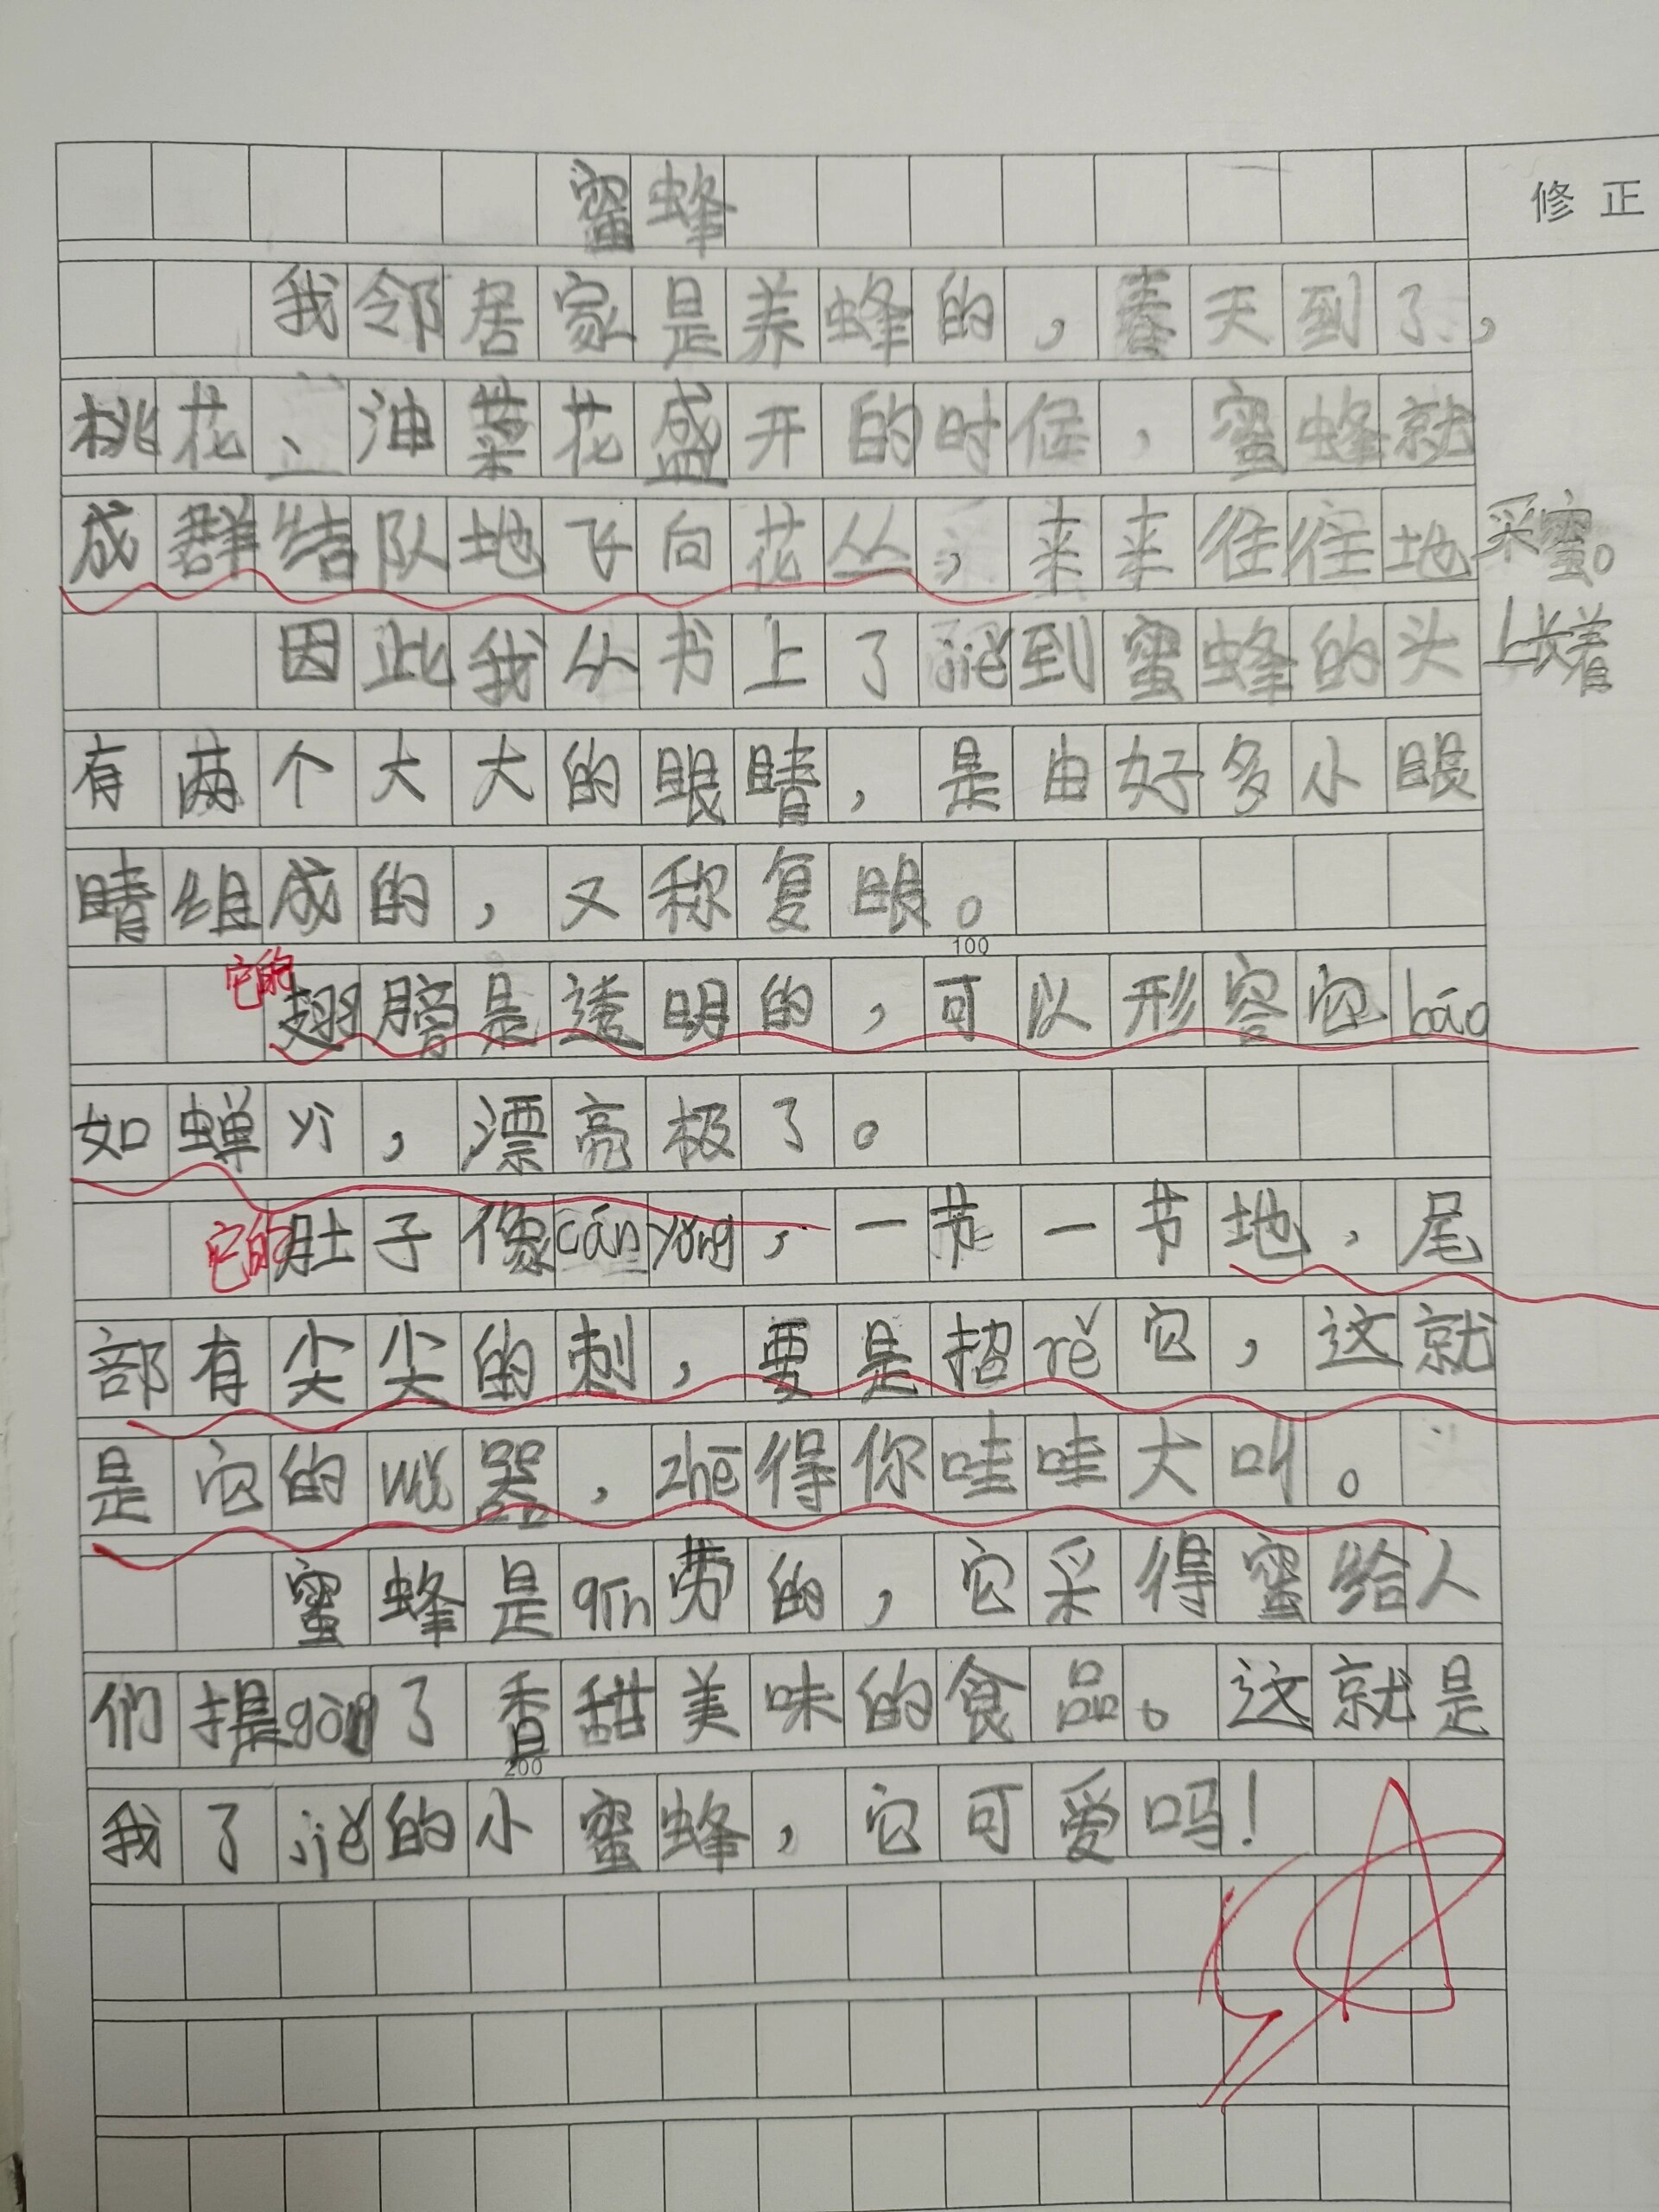 蜜蜂
修正
我邻居家是养蜂的，春天到了，
桃花、油菜花盛开的时候，蜜蜂就
成群结队地飞向花丛，来来往往地采蜜。
因此我从书上了jiě到蜜蜂的头上长着
有两个大大的眼睛，是由好多小眼
睛组成的，又称复眼。
100
它的翅膀是透明的，可以形容它báo
如蝉yì，漂亮极了。
它的肚子像cányǒng，一节一节地，尾
部有尖尖的刺，要是招rě它，这就
是它的wǔ器，zhē得你哇哇大叫。
蜜蜂是qín劳的，它采得蜜给人
们提gòng了香甜美味的食品。这就是
200
我了jiě的小蜜蜂，它可爱吗！